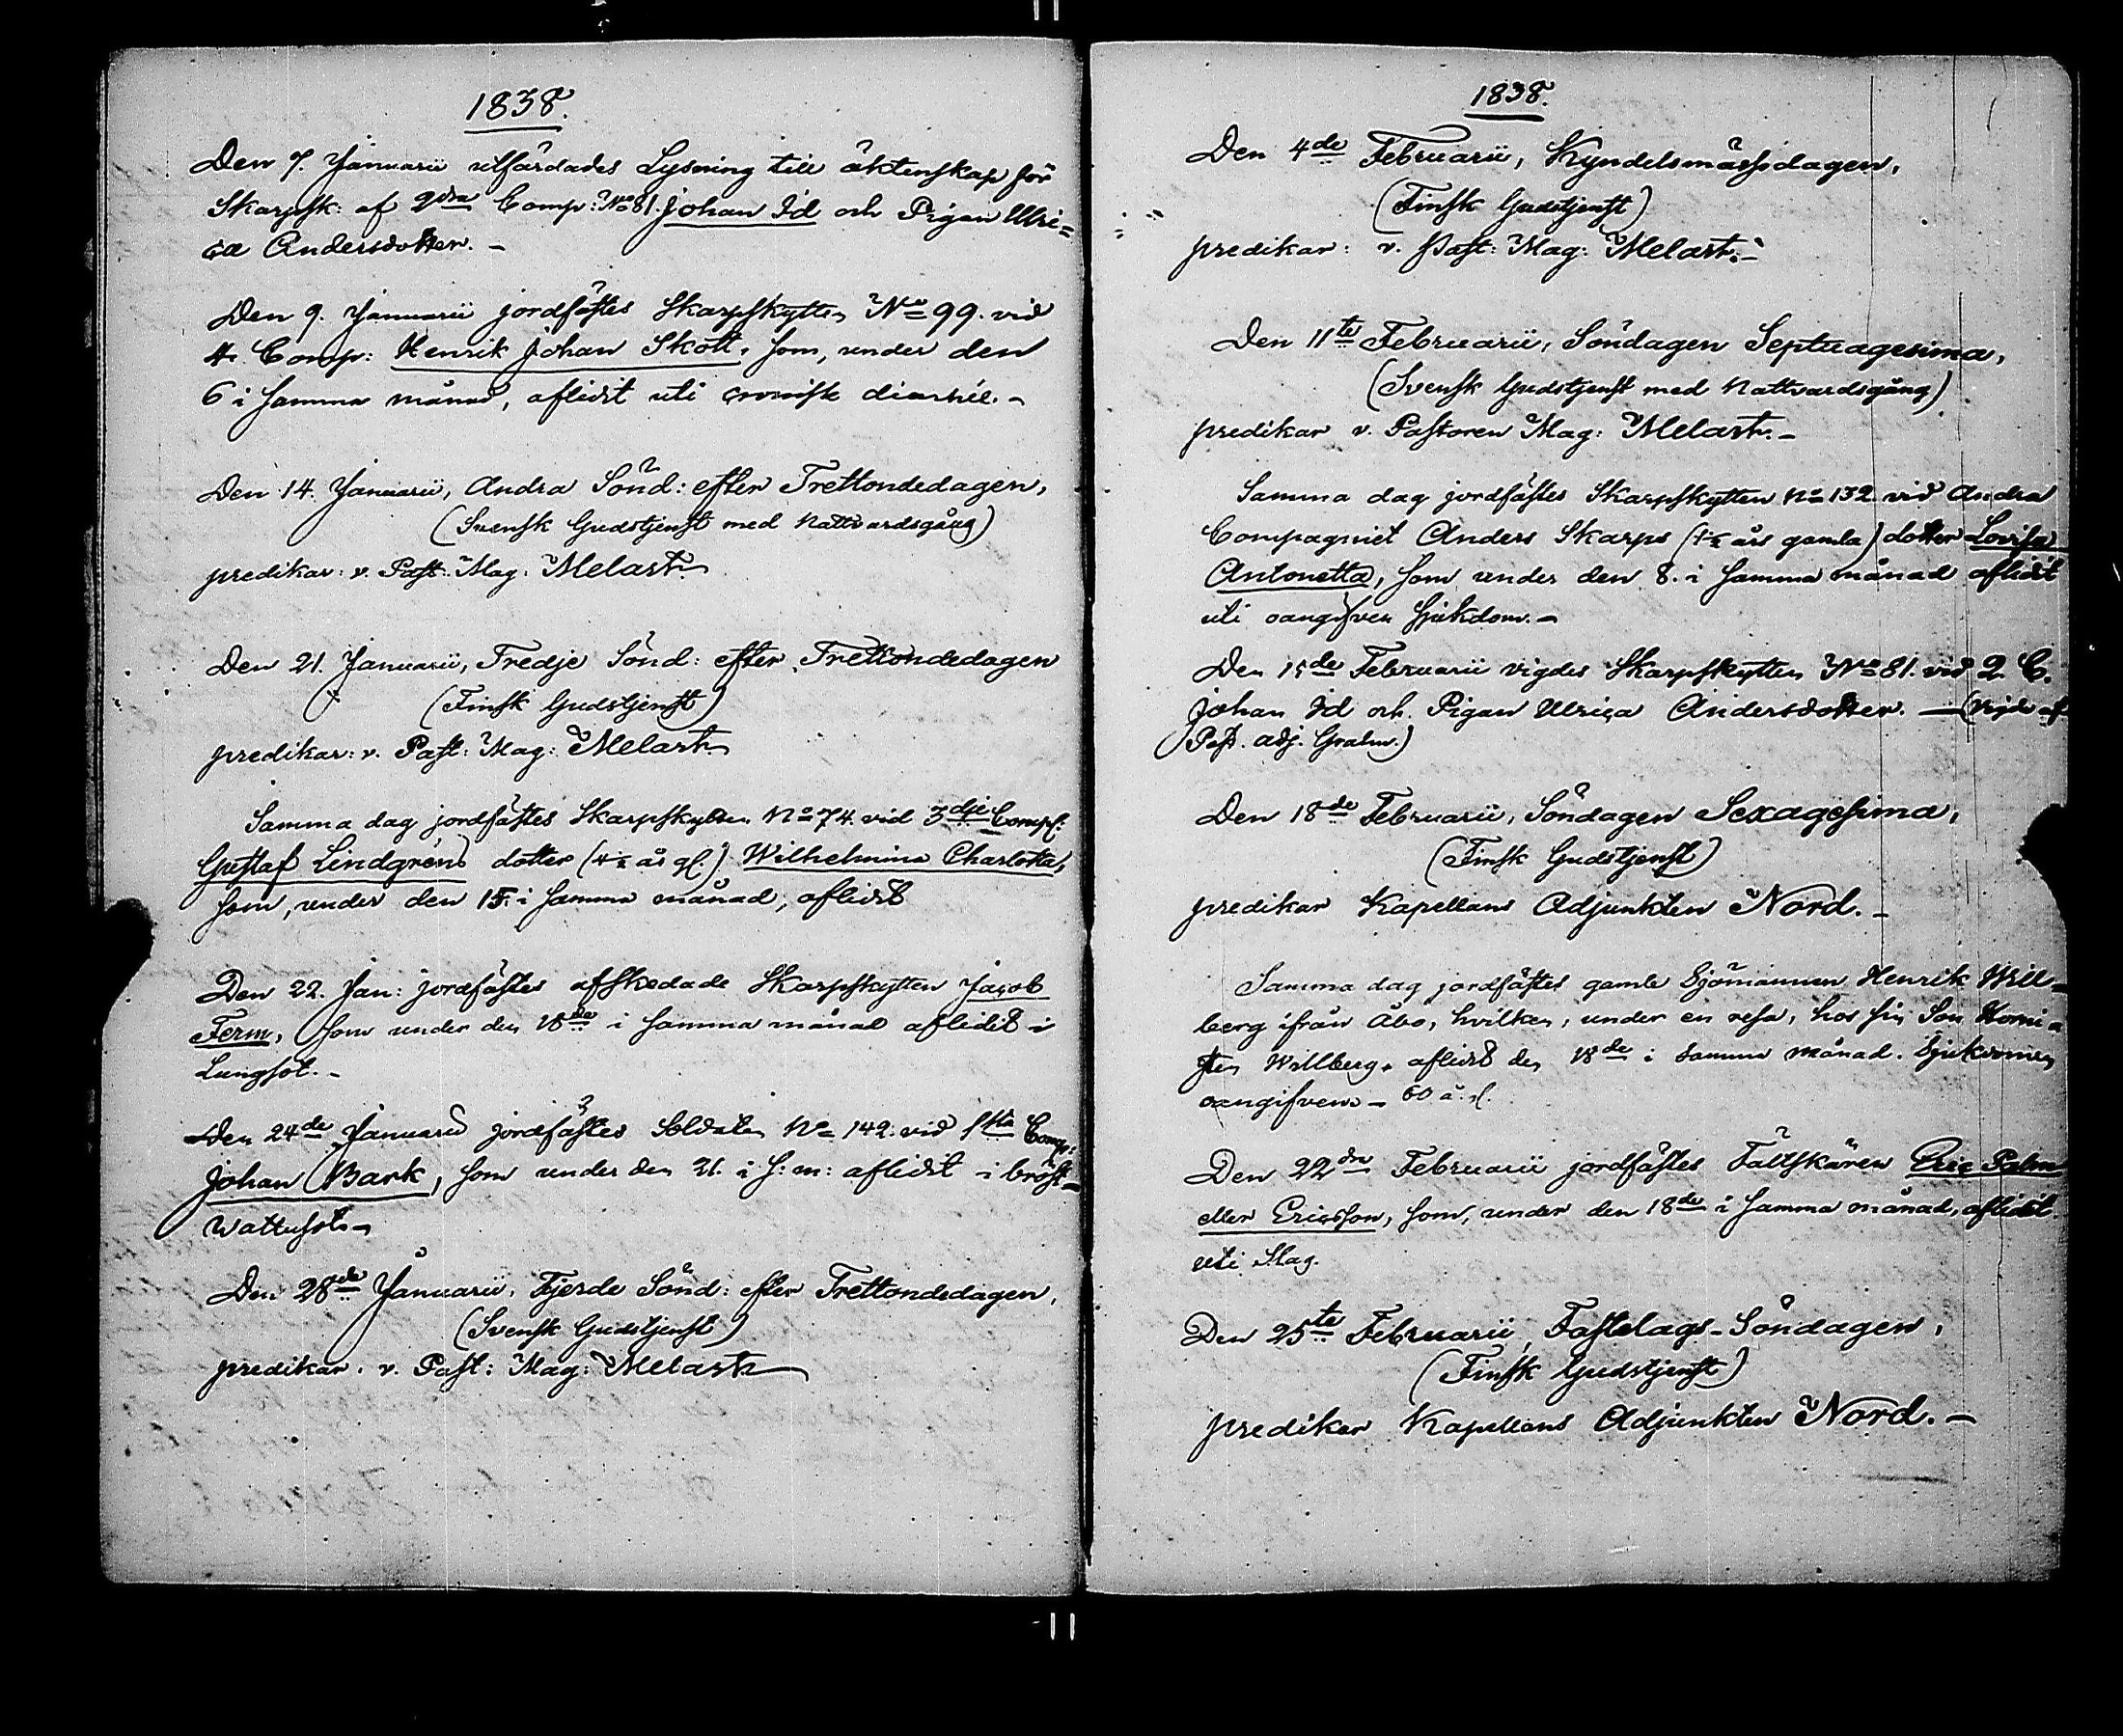 1838.
Den 7. Januarii utfärdades Lysning till äktenskap för
Skarpsk: af 2dra Comp: No 81. Johan Id och Pigan Ulri=
ca Andersdotter. –
Den 9. Januarii jordfästes Skarpskytten No 99. vid
4. Comp: Henrik Johan Skott, som, under den
6 i samma månad, aflidit uti cronisk diarhée. –
Den 14. Januarii, Andra Sönd: efter Trettondedagen,
(Svensk Gudstjenst med Nattvardsgång)
predikar: v. Past: Mag: Melart.
Den 21. Januarii, Tredje Sönd: efter Trettondedagen
(Finsk Gudstjenst)
predikar: v. Past: Mag: Melart.
Samma dag jordfästes Skarpskytten No 74. vid 3dje Comp:
Gustaf Lindgréns dotter (4½ år gl.) Wilhelmina Charlotta,
som, under den 15. i samma månad, aflidit
Den 22. Jan: jordfästes afskedade Skarpskytten Jacob
Ferm, som under den 18de i samma månad aflidit i
Lungsot. –
Den 24de Januarii jordfästes Soldaten No 142. vid 1sta Comp:
Johan Bark, som under den 21. i s: m: aflidit i bröst=
wattusot. –
Den 28de Januarii, Fjerde Sönd: efter Trettondedagen,
(Svensk Gudstjenst)
predikar. v. Past: Mag: Melart.
1838.
Den 4de Februarii, Kyndelsmässodagen,
(Finsk Gudstjenst)
predikar: v. Past: Mag: Melart. –
Den 11te Februarii, Söndagen Septuagesima,
(Svensk Gudstjenst med Nattvardsgång)
predikar v. Pastoren Mag: Melart. –
Samma dag jordfästes Skarpskytten No 132. vid Andra
Compagniet Anders Skarps (1½ års gamla) dotter Lovisa
Antonetta, som under den 8. i samma månad aflidit
uti oangifven sjukdom. –
Den 15de Februarii vigdes Skarpskytten No 81. vid 2. C.
Johan Id och Pigan Ulrica Andersdotter. – (Vigde af
Past. adj. Gralm.)
Den 18de Februarii, Söndagen Sexagesima,
(Finsk Gudstjenst)
predikar Kapellans Adjunkten Nord. –
Samma dag jordfästes gamle Sjömannen Henrik Will=
berg ifrån Åbo, hvilken, under en resa, hos sin Son Horni=
sten Willberg, aflidit den 18de i samma månad. Sjukdomen
oangifven. – 60 å. gl.
Den 22dra Februarii jordfästes Fältskären Eric Palm
eller Ericsson, som, under den 18de i samma månad, aflidit
uti Slag.
Den 25te Februarii, Fastelags-Söndagen,
(Finsk Gudstjenst)
predikar Kapellans Adjunkten Nord. –